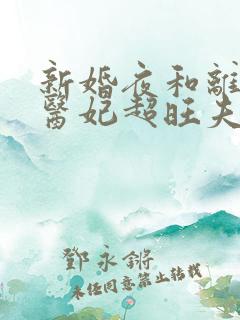 新婚夜和離
醫妃超旺夫
鄧永鏘
未任同意禁止轉載